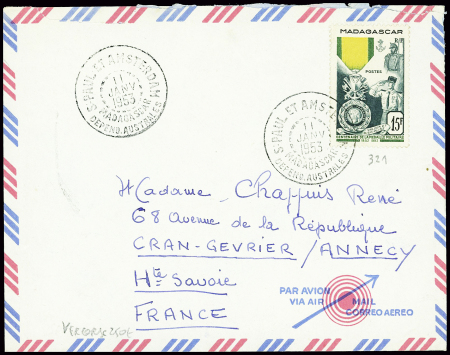 S. PAUL ET AMSTERDAM
11
JANV
1953
MADAGASCAR
DEFEND. AUSTRALES
S. PAUL ET AMSTE
11
1953
MADAGASCAR
DEFEND. AUSTRALES
MADAGASCAR
RF
POSTES
15F
CENTENAIRE DE LA MÉDAILLE MILITAIRE
1852 1952
321
Madame Chappuis René
68 Avenue de la République
CRAN-GEVRIER / ANNECY
Hte Savoie
FRANCE
PAR AVION
VIA AIR MAIL
CORREO AEREO